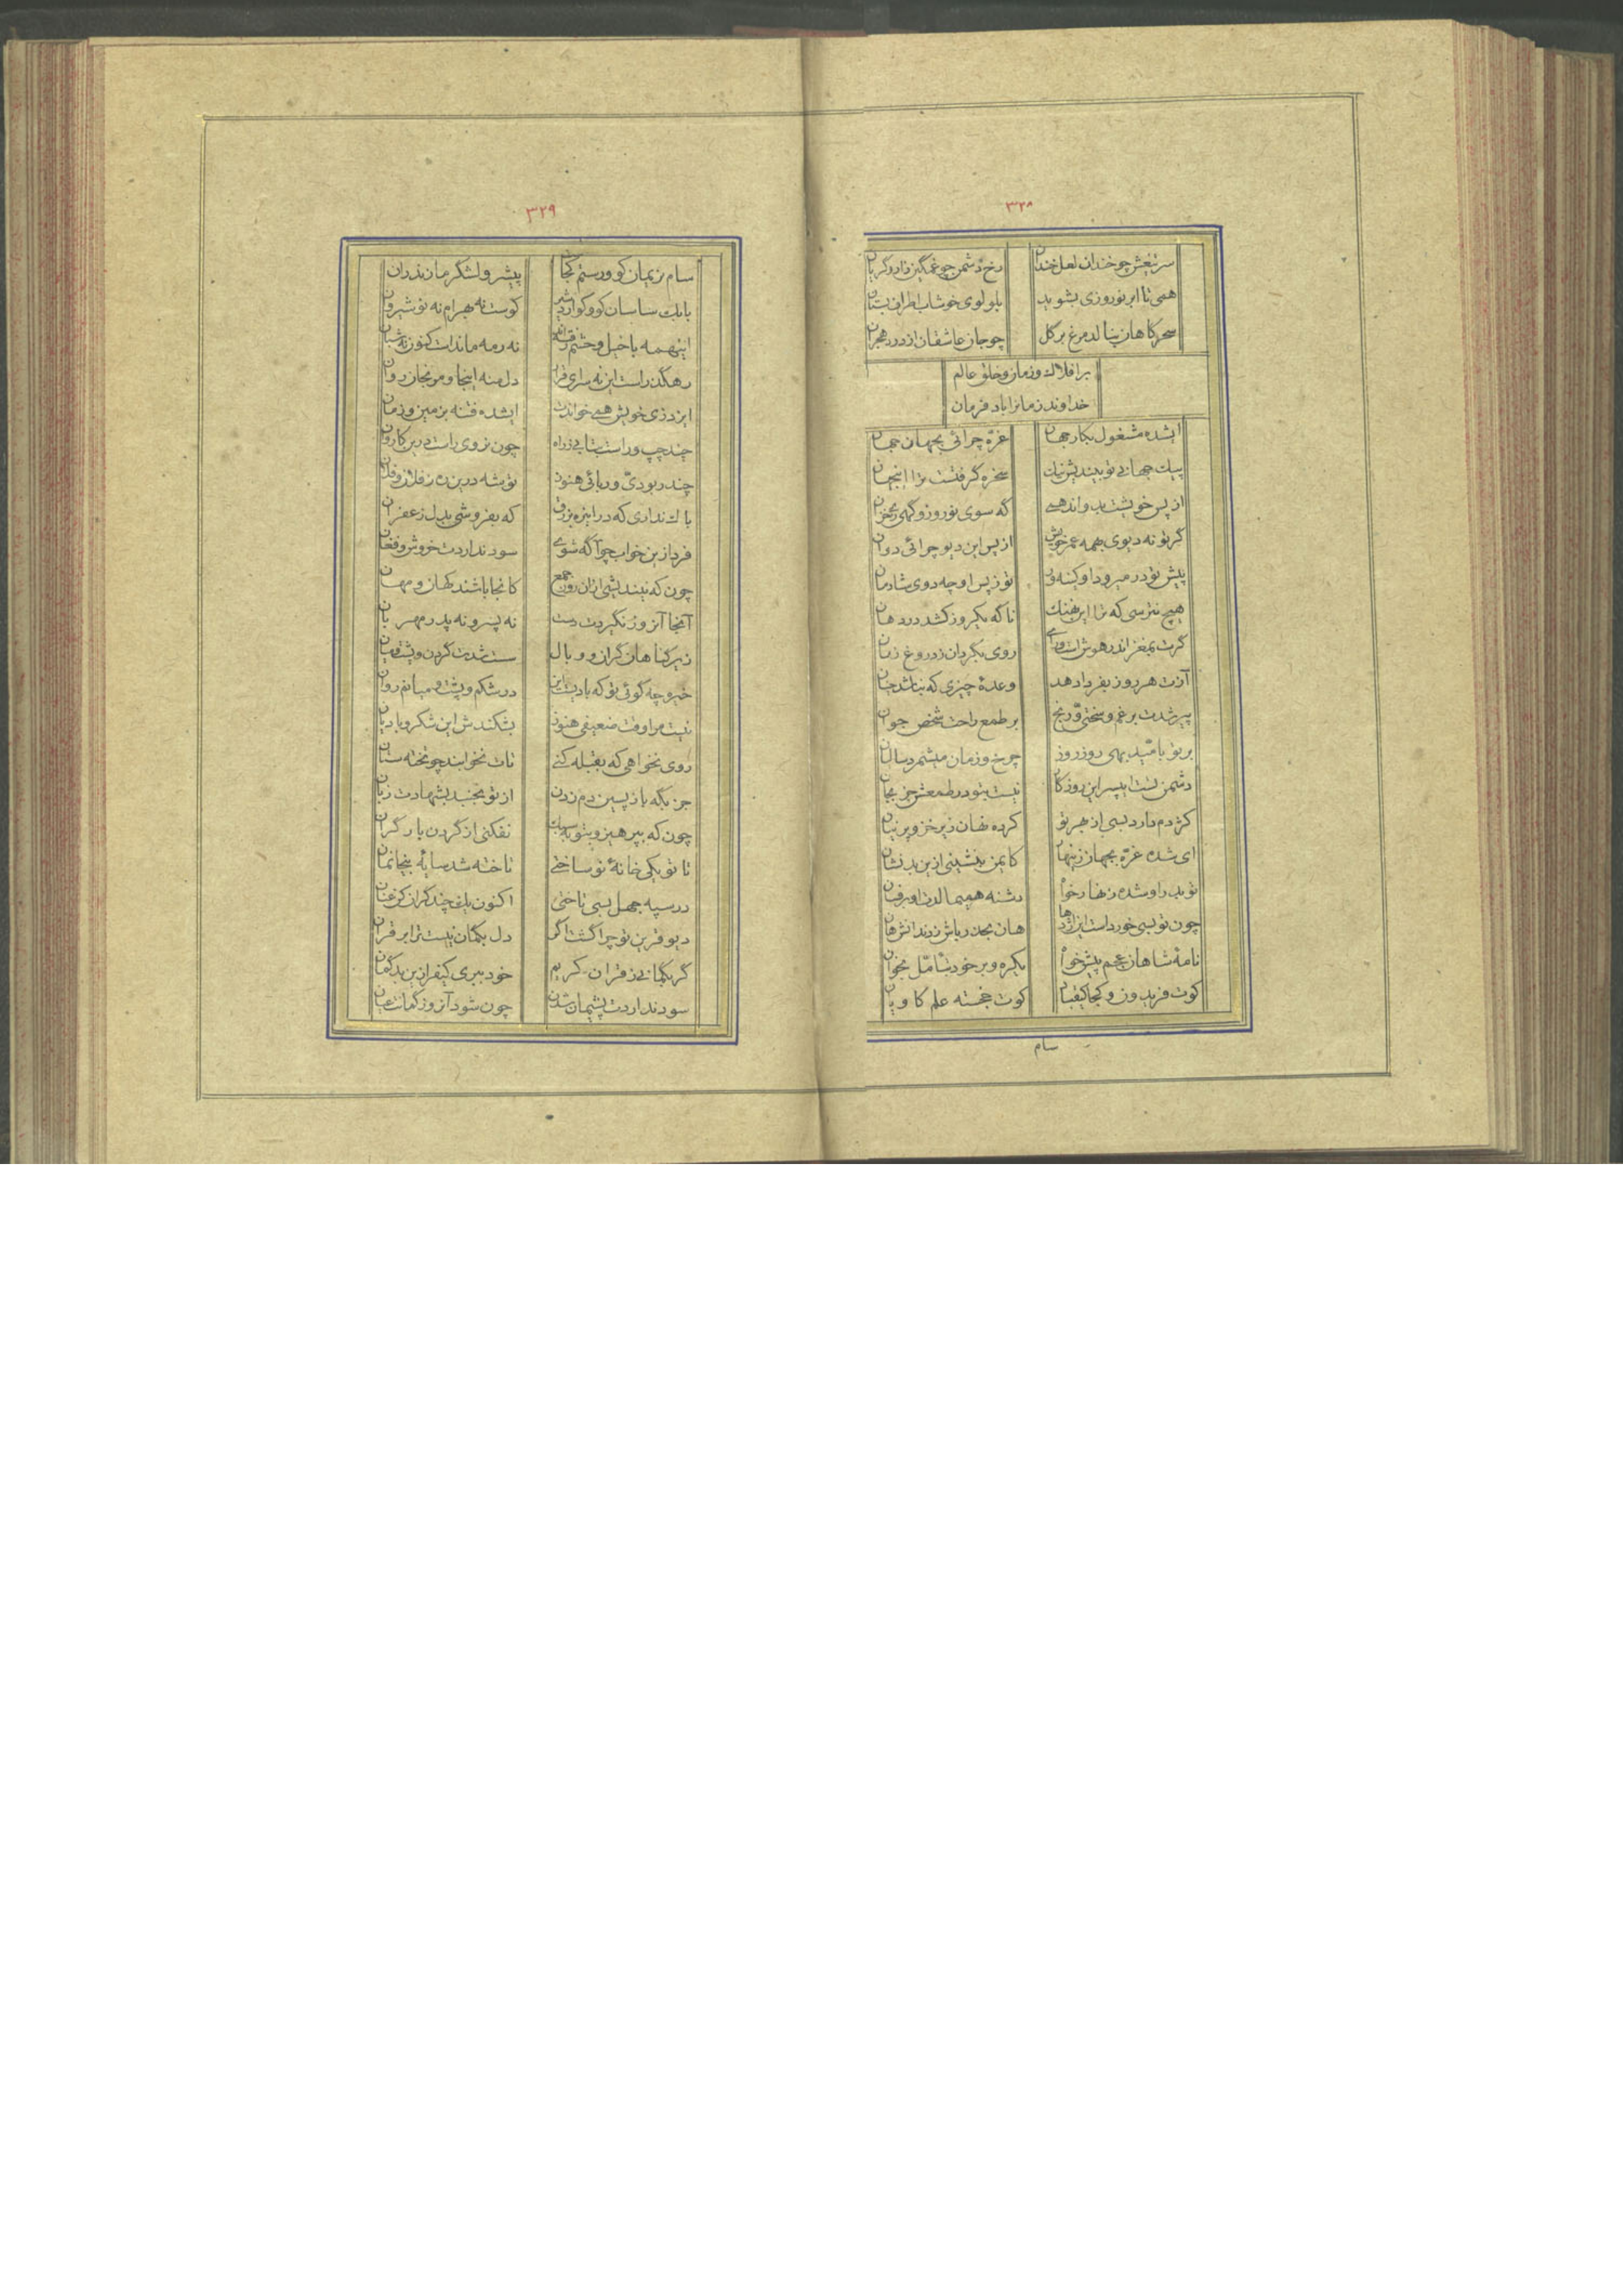 ۳۲۸
سر تیغش چو خندان لعل خندان رخ دشمن چو غمگین زار و گریان
همی تا ابر نوروزی بشوید بلولوی خوشاب اطراف بستان
سحرکاهان بنالد مرغ بر کل چو جان عاشقان از درد هجران
بر افلاک و زمان و خلق عالم
خداوند زمانرا باد فرمان
ایشده مشغول بکار جهان غرّه چرائی بجهان جهان
پیک جهانی تو بیندیش نیک سخره گرفتست ترا اینجهان
از پس خویشت بدواند همی که سوی نوروز و کهی زی خزان
گر تو نه دیوی بهمه عمر خویش از پس این دیو چرائی دوان
پیش تو در میرود او کینه ور تو ز پس او چه دوی شادمان
هیچ نترسی که ترا این نهنک ناکه یکروز کشد در دهان
گرت بمغز اندر هوش است و رای روی بگردان ز دروغ زنان
آزت هر روز بفردا دهد وعدهٔ چیزی که نباشد چنان
پیر شدت بر غم و سختی و رنج بر طمع راحت شخص جوان
بر تو بامّید بهی روز روز چرخ و زمان میشمرد سالیان
دشمن تست ایپسر این روزکار نیست بتو در طمعش جز بجان
کژدم دارد بسی از بهر تو کرده نهان زیر خز و پرنیان
ای شده غرّه بجهان زینهار کایمن بنشینی ازین بدنشان
تو بد او شده زنهار خوار دشنه همیمالدت او بر فسان
چون تو بسی خورداست این اژدها هان بحذر باش ز دندانش هان
نامهٔ شاهان عجم پیش خواه یکره و بر خود بتأمّل بخوان
کوت فریدون و کجا کیقباد کوت خجسته علم کاویان
سام
۳۲۹
سام نریمان کو و رستم کجا پیشرو لشگر مازندران
بابک ساسان کو و کو اردشیر کوست نه بهرام نه نوشیروان
اینهمه با خیل و حشم رفته‌اند نه رمه ماندست کنون نه شبان
رهگذر است این نه سرای قرار دل منه اینجا و مرنجان روان
ایزد زی خویش همی خواندت ایشده فتنه بزمین و زمان
چند چپ و راست بتابی ز راه چون نروی راست درین کاروان
چند ربودیّ و ربائی هنوز توشه درین ره ز فلان و فلان
باک نداری که در این ره بزرق که بفروشی بدل زعفران
فردا زین خواب چو آگه شوی سود نداردت خروش و فغان
چون که نیندیشی از آن روز جمع کانجا باشند کهان و مهان
آنجا آنروز نگیردت دست نه پسر و نه پدر مهربان
زیر کناهان کران و وبال سست شدت گردن و پشت و میان
خیره چه گوئی تو که بادیست این در شکم و پشت و میانم روان
نیست مرا وقت ضعیفی هنوز بشکندش این شکر و بادیان
روی نخواهی که بقبله کنی تات نخوابند چو تخته ستان
جز بگه باز پسین دم زدن از تو نجنبد بشهادت زبان
چون که بپرهیز و بتوبه سبک نفکنی از گردن بار گران
تا تو یکی خانهٔ نو ساختی تاخته شد سایهٔ بیخانمان
در سپه جهل بسی تاختی اکنون یکچند گران کن عنان
دیو قرین تو چرا گشت اگر دل بگمان نیست ترا بر قران
گر بگمانی ز قران کریم خود ببری کیفر ازین بدگمان
سود نداردت پشیمان شدن چون شود آنروز گمانت عیان